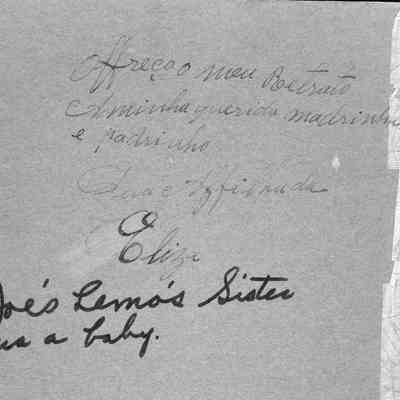 Offreço o meu Retrato
A minha querida madrinha
e padrinho
Sua Affilhada
Eliza
Joe's Lemos Sister
as a baby.